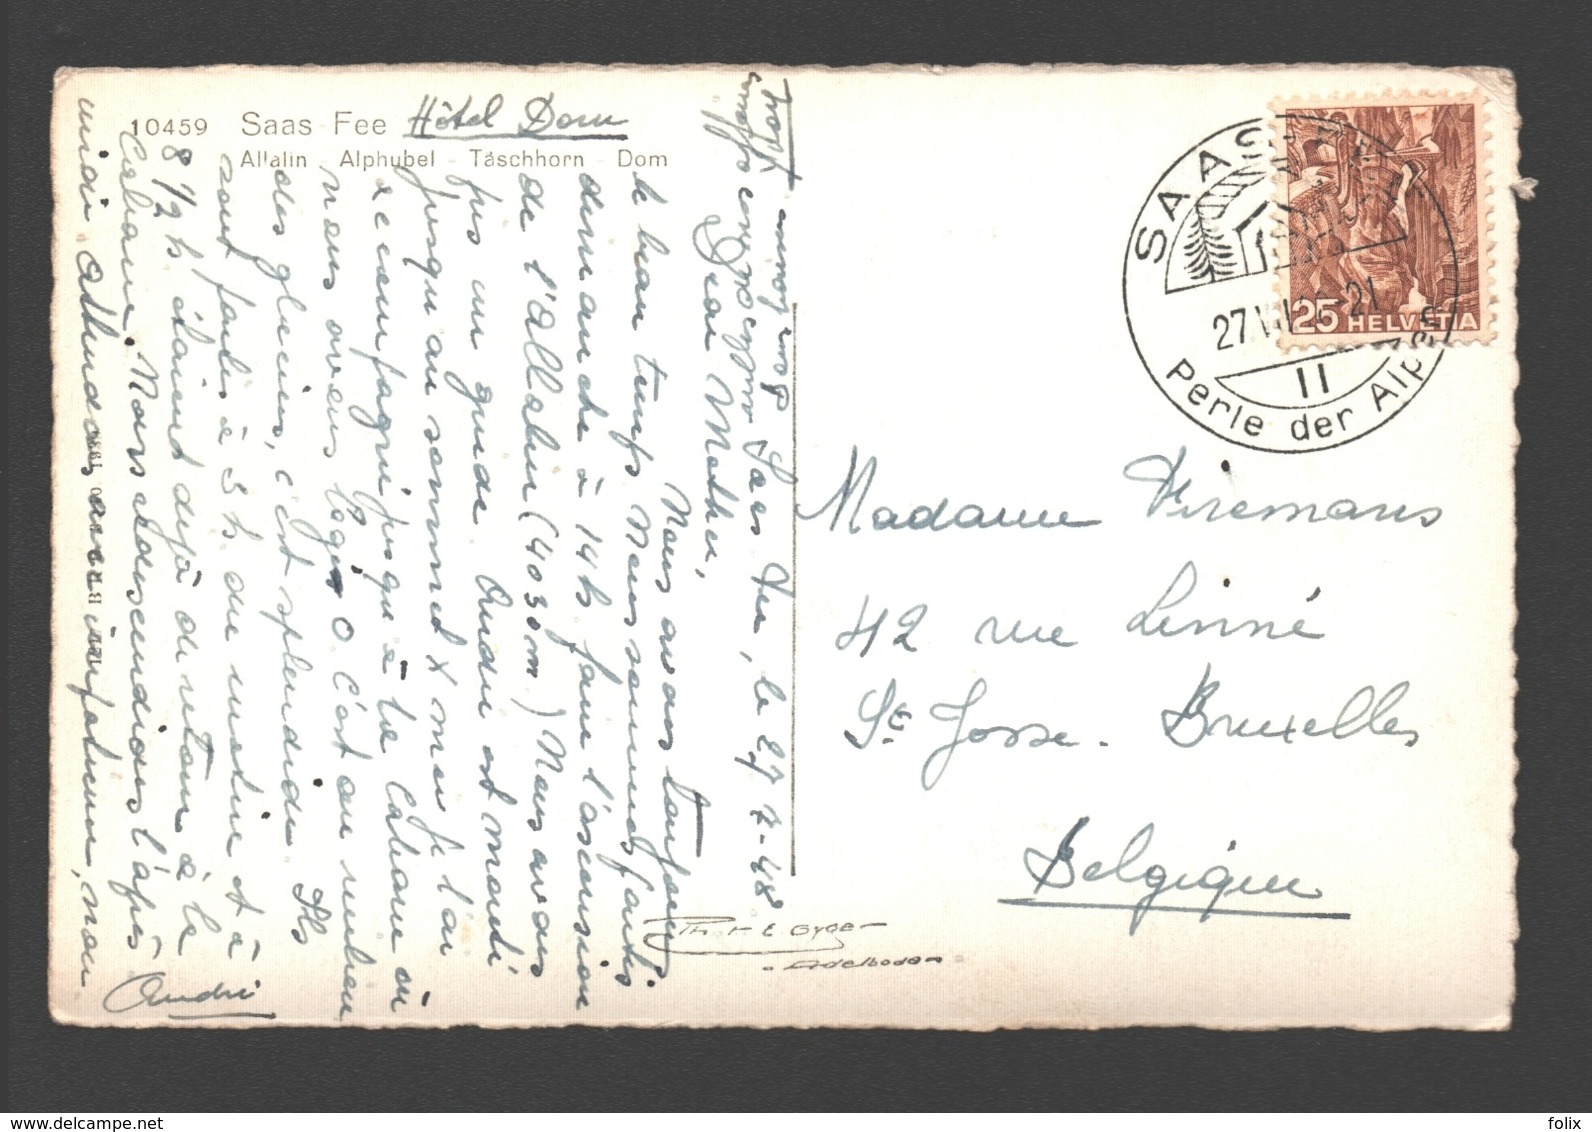 10459 Saas-Fee Hôtel Dom
Allalin - Alphubel - Täschhorn - Dom
Saas Fee, le 27-7-48
Dear Mother,
Nous avons toujours
le beau temps. Nous sommes partis
dimanche à 14h faire l'ascension
de l'Allalin (4030m) Nous avons
pris un guide. André est monté
jusqu'au sommet & moi je l'ai
accompagné jusqu'à la cabane où
nous avons logé. C'est au milieu
des glaciers, c'est splendide. Ils
sont partis à 3h du matin et à
8 1/2 h étaient déjà de retour à la
Cabane. Nous redescendions l'après
midi.
André
Madame Piremans
42 rue Linné
St Josse - Bruxelles
Belgique
Phot E Gyger
Adelboden
SAAS-
27.VII
21
II
Perle der Alpen
25 HELVETIA
www.delcampe.net
folix